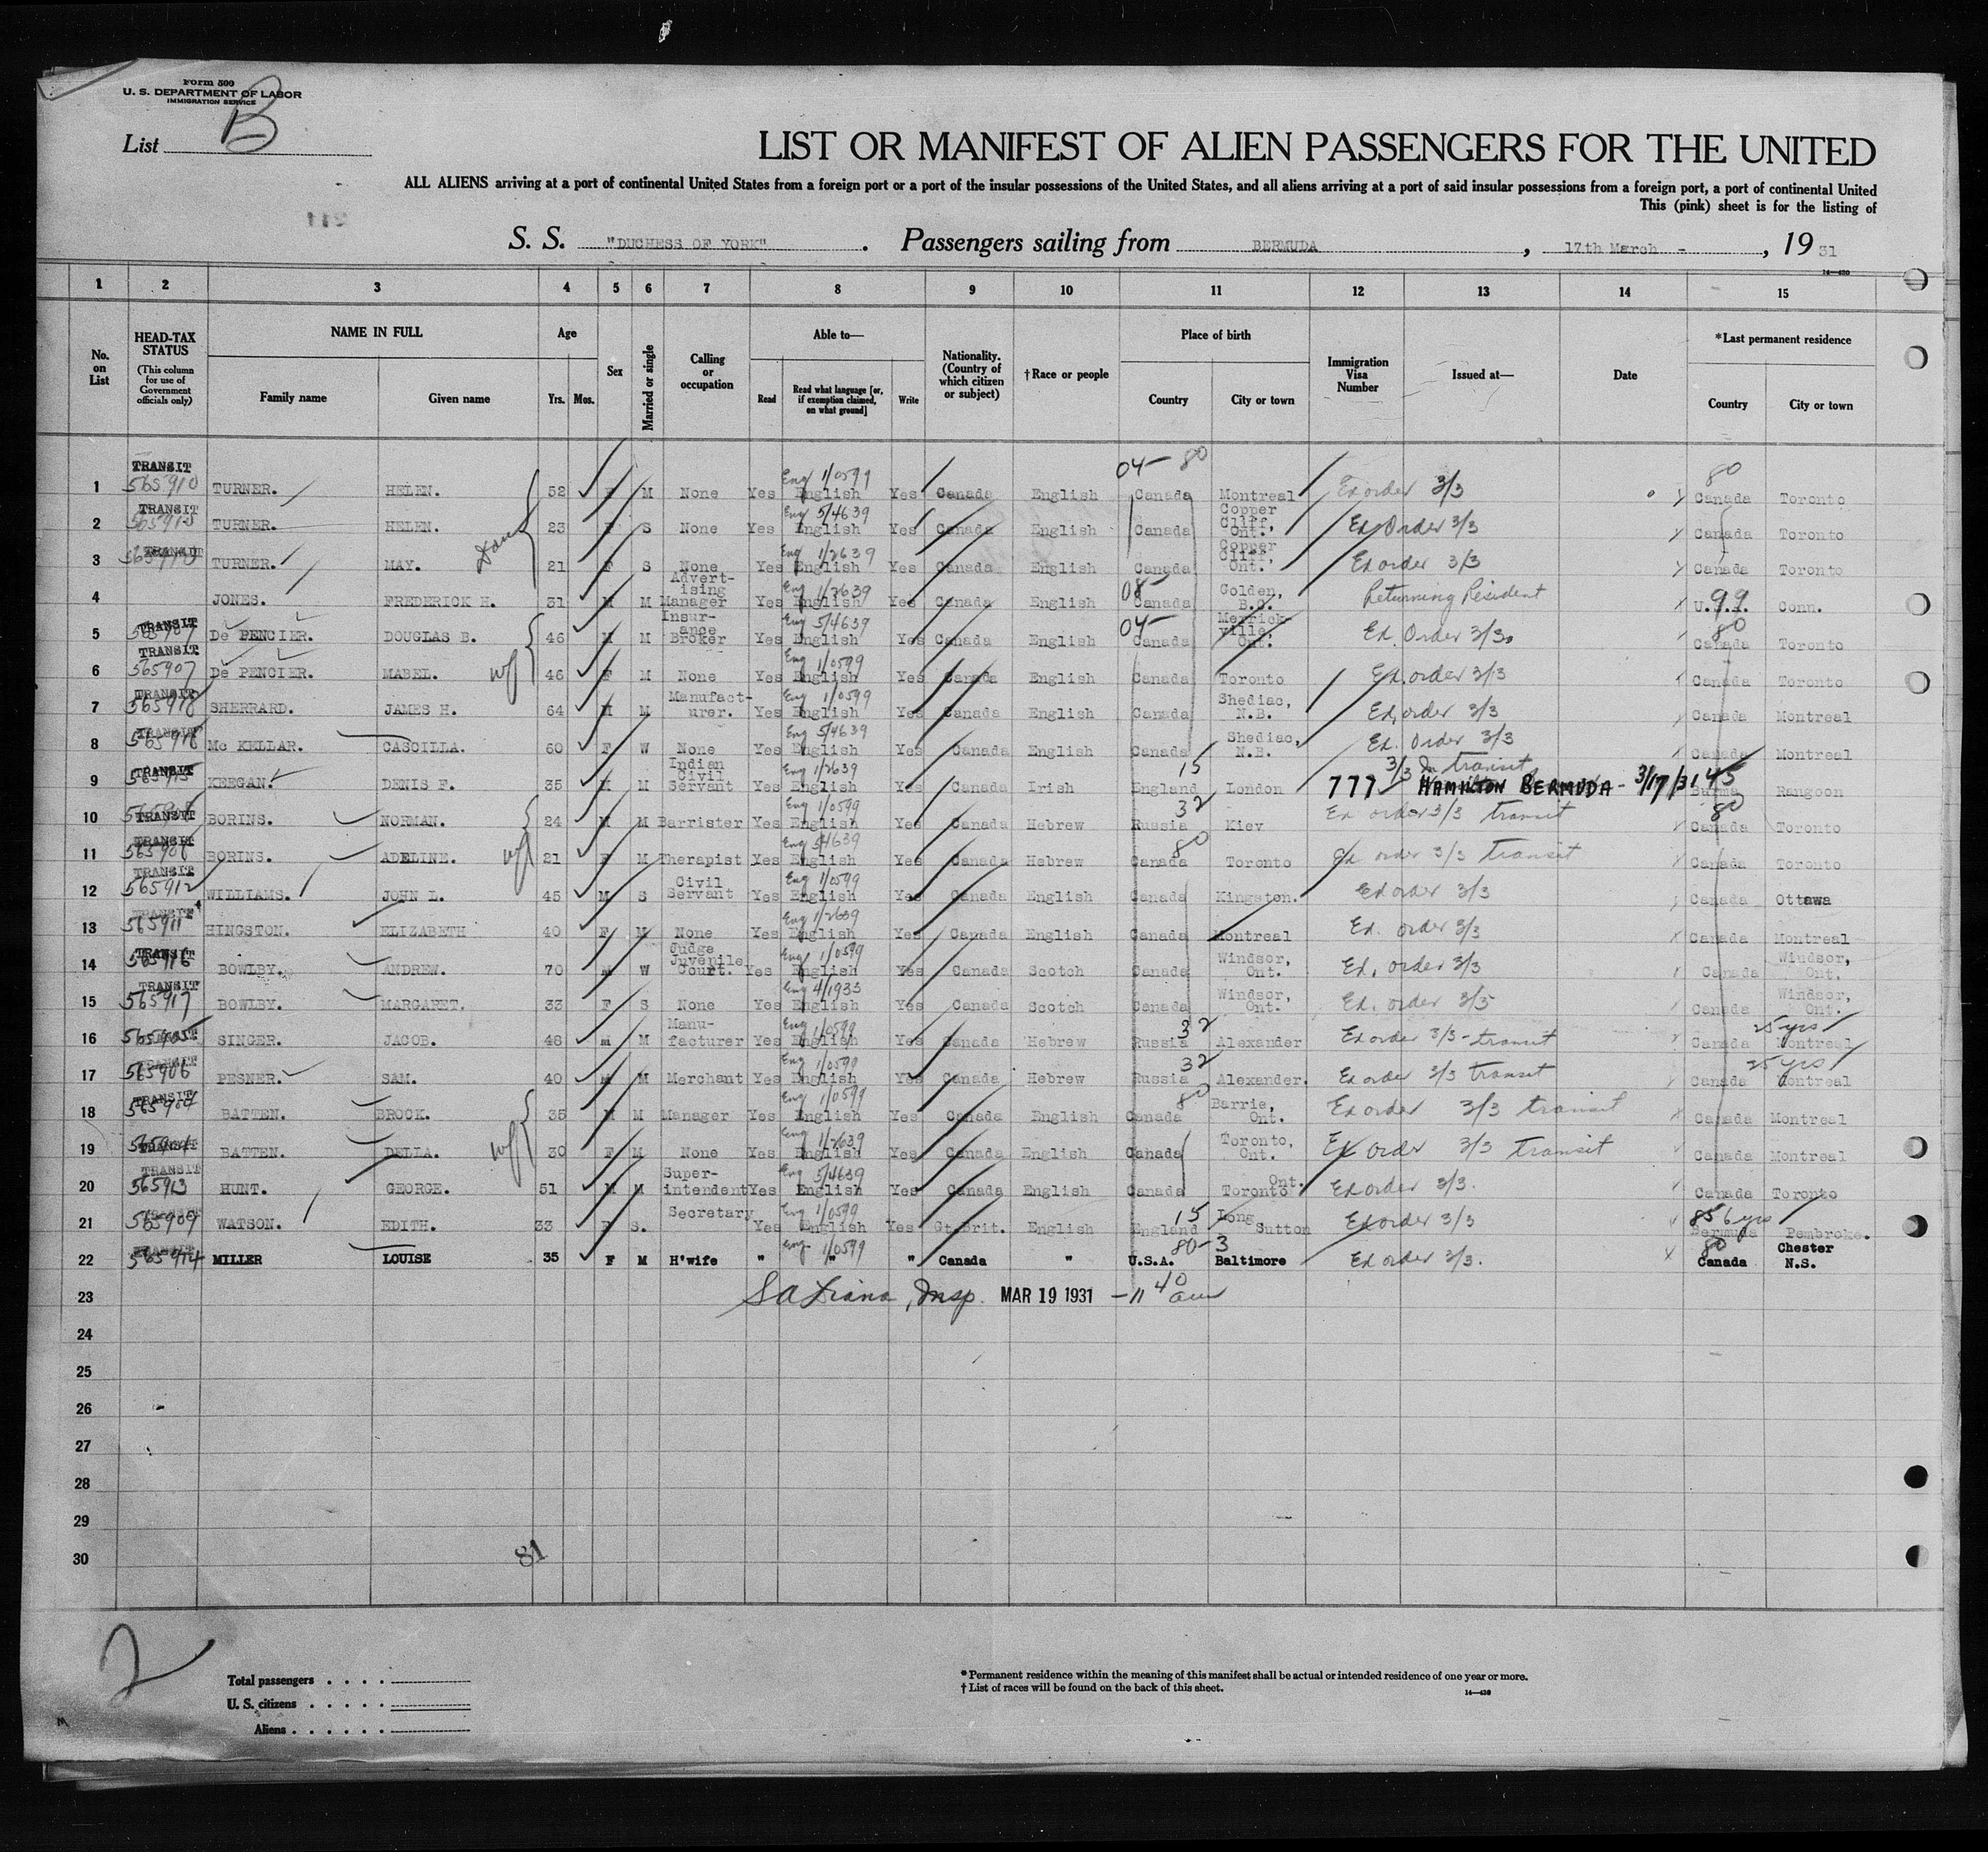 Form 500
U. S. DEPARTMENT OF LABOR
IMMIGRATION SERVICE
List B
LIST OR MANIFEST OF ALIEN PASSENGERS FOR THE UNITED
ALL ALIENS arriving at a port of continental United States from a foreign port or a port of the insular possessions of the United States, and all aliens arriving at a port of said insular possessions from a foreign port, a port of continental United
This (pink) sheet is for the listing of
S. S. "DUCHESS OF YORK". Passengers sailing from BERMUDA, 17th March -, 19 31
14—430
1 2 3 4 5 6 7 8 9 10 11 12 13 14 15
No. on List
HEAD-TAX STATUS (This column for use of Government officials only)
NAME IN FULL Family name Given name
Age Yrs. Mos.
Sex
Married or single
Calling or occupation
Able to— Read Read what language [or, if exemption claimed, on what ground] Write
Nationality. (Country of which citizen or subject)
†Race or people
Place of birth Country City or town
Immigration Visa Number
Issued at—
Date
*Last permanent residence Country City or town
1 TRANSIT 565910 TURNER. HELEN. 52 F M None Yes English Eng 1/0599 Yes Canada English 04- 80 Canada Montreal Ex order 3/3 80 Canada Toronto
2 TRANSIT TURNER. HELEN. 23 F S None Yes English Eng 5/4639 Yes Canada English Canada Copper Cliff, Ont. Ex Order 3/3 Canada Toronto
3 TRANSIT TURNER. MAY. 21 F S None Yes English Eng 1/2639 Yes Canada English Canada Copper Cliff, Ont. Ex order 3/3 Canada Toronto
4 JONES. FREDERICK H. 31 M M Advertising Manager Yes English Eng 1/2639 Yes Canada English 08- Canada Golden, B.C. Returning Resident 99 U.S.A. Conn.
5 TRANSIT De PENCIER. DOUGLAS B. 46 M M Insurance Broker Yes English Eng 5/4639 Yes Canada English 04- Canada Merrickville, Ont. Ex. Order 3/3 80 Canada Toronto
6 TRANSIT 565907 De PENCIER. MABEL. wf 46 F M None Yes English Eng 1/0599 Yes Canada English Canada Toronto Ex. order 3/3 Canada Toronto
7 TRANSIT 565918 SHERRARD. JAMES H. 64 M M Manufacturer. Yes English Eng 1/0599 Yes Canada English Canada Shediac, N.B. Ex. order 3/3 Canada Montreal
8 TRANSIT 565918 Mc KELLAR. CASCILLA. 60 F W None Yes English Eng 5/4639 Yes Canada English Canada Shediac, N.B. Ex. Order 3/3 Canada Montreal
9 TRANSIT 565915 KEEGAN. DENIS F. 35 M M Indian Civil Servant Yes English Eng 1/2639 Yes Canada Irish 15 England London 777 3/3 In transit HAMILTON BERMUDA - 3/17/31 45 Burma Rangoon
10 TRANSIT BORINS. NORMAN. 24 M M Barrister Yes English Eng 1/0599 Yes Canada Hebrew 32 Russia Kiev Ex order 3/3 transit 80 Canada Toronto
11 TRANSIT BORINS. ADELINE. wf 21 F M Therapist Yes English Eng 5/4639 Yes Canada Hebrew 80 Canada Toronto Ex order 3/3 transit Canada Toronto
12 TRANSIT 565912 WILLIAMS. JOHN L. 45 M S Civil Servant Yes English Eng 1/0599 Yes Canada English Canada Kingston. Ex order 3/3 Canada Ottawa
13 TRANSIT 565911 HINGSTON. ELIZABETH 40 F M None Yes English Eng 1/2639 Yes Canada English Canada Montreal Ex. order 3/3 Canada Montreal
14 TRANSIT 565916 BOWLBY. ANDREW. 70 M W Judge Juvenile Court. Yes English Eng 1/0599 Yes Canada Scotch Canada Windsor, Ont. Ex. order 3/3 Canada Windsor, Ont.
15 TRANSIT 565917 BOWLBY. MARGARET. 33 F S None Yes English Eng 4/1933 Yes Canada Scotch Canada Windsor, Ont. Ex. order 3/3 Canada Windsor, Ont.
16 TRANSIT 565905 SINGER. JACOB. 48 M M Manufacturer Yes English Eng 1/0599 Yes Canada Hebrew 32 Russia Alexander Ex order 3/3 - transit 25 yrs Canada Montreal
17 TRANSIT 565906 PESNER. SAM. 40 M M Merchant Yes English Eng 1/0599 Yes Canada Hebrew 32 Russia Alexander. Ex order 3/3 transit 25 yrs Canada Montreal
18 TRANSIT 565904 BATTEN. BROOK. 35 M M Manager Yes English Eng 1/0599 Yes Canada English 80 Canada Barrie, Ont. Ex order 3/3 transit Canada Montreal
19 TRANSIT BATTEN. DELLA. wf 30 F M None Yes English Eng 1/2639 Yes Canada English Canada Toronto, Ont. Ex order 3/3 transit Canada Montreal
20 TRANSIT 565913 HUNT. GEORGE. 51 M M Superintendent Yes English Eng 5/4639 Yes Canada English Canada Toronto Ont. Ex order 3/3. Canada Toronto
21 TRANSIT 565909 WATSON. EDITH. 33 F S. Secretary Yes English Eng 1/0599 Yes Gt.Brit. English 15 England Long Sutton Ex order 3/3 85 6 yrs Bermuda Pembroke.
22 TRANSIT 565914 MILLER LOUISE 35 F M H'wife " " Eng 1/0599 " Canada " 80-3 U.S.A. Baltimore Ex order 3/3. 80 Canada Chester N.S.
23 Insp. MAR 19 1931 - 11 40 am
24
25
26
27
28
29
30
81
2
Total passengers . . . .
U. S. citizens . . . . .
Aliens . . . . . .
*Permanent residence within the meaning of this manifest shall be actual or intended residence of one year or more.
†List of races will be found on the back of this sheet.
14—430